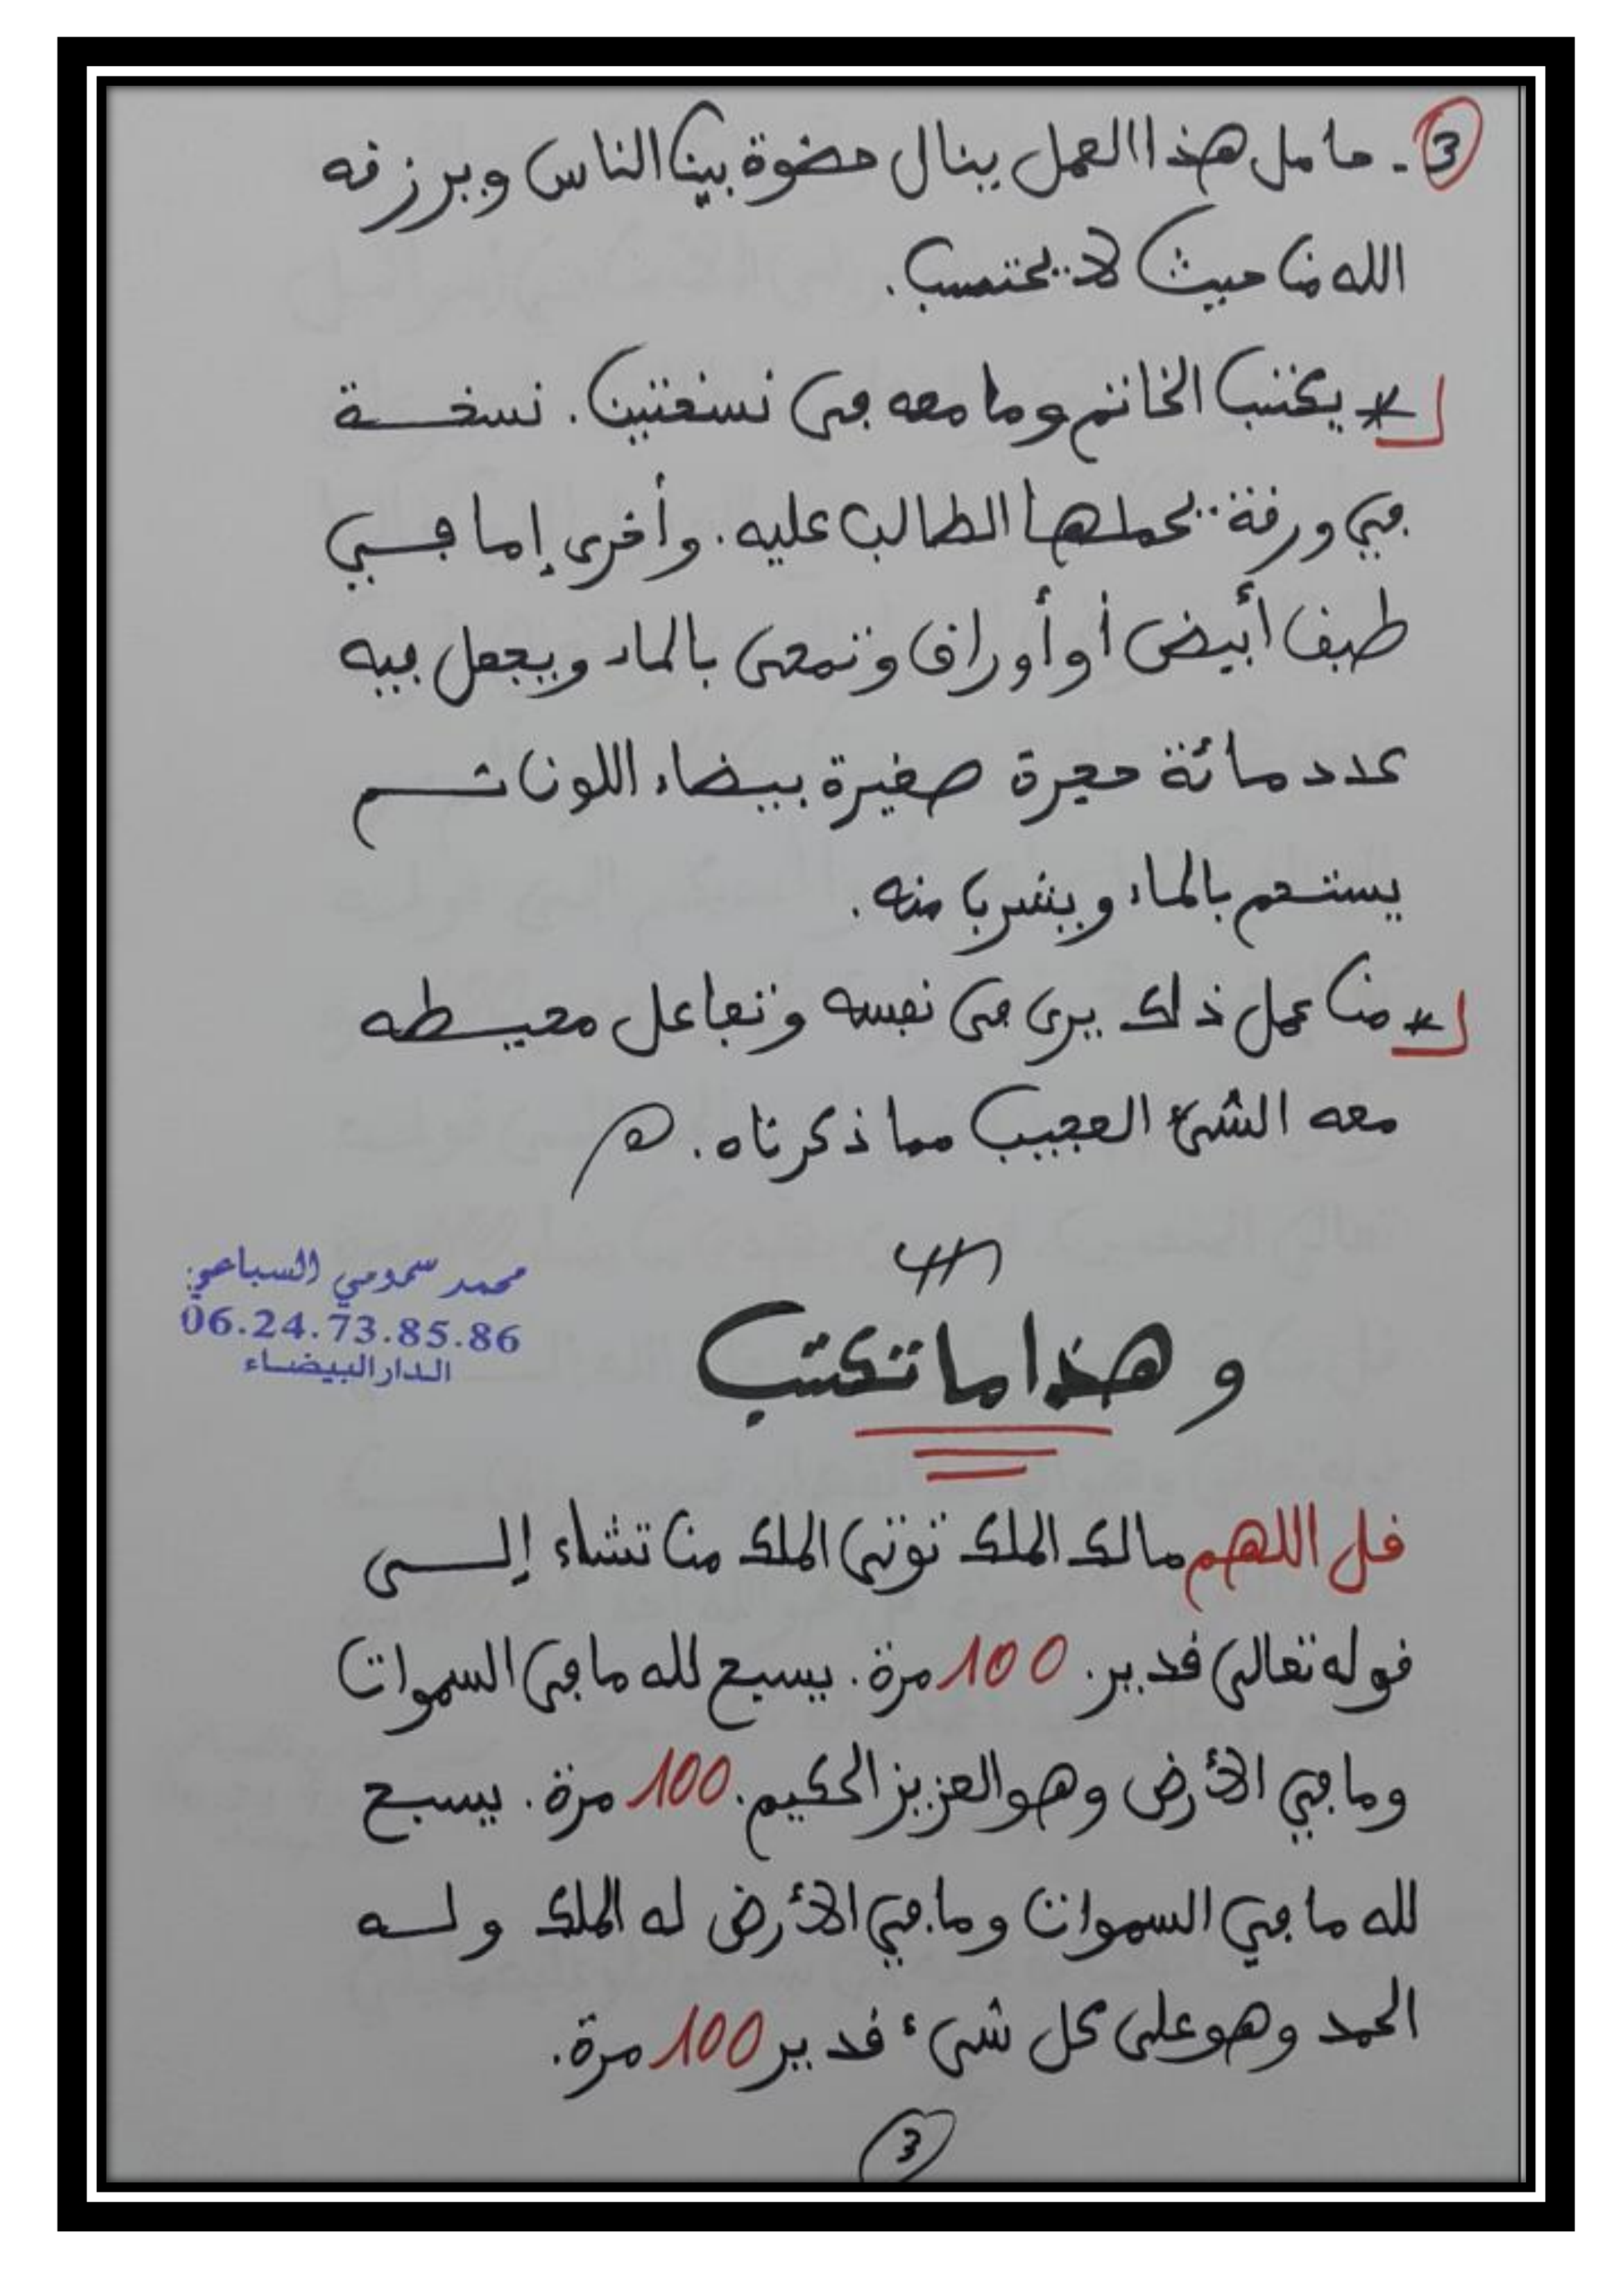 3 - حامل هذا العمل ينال حضوة بين الناس ويرزقه
الله من حيث لا يحتسب.
* يكتب الخاتم وما معه في نسختين. نسخة
في ورقة يحملها الطالب عليه. وأخرى إما في
طبق أبيض أو أوراق وتمحى بالماء ويجعل فيه
عدد مائة حجرة صغيرة بيضاء اللون ثم
يستحم بالماء ويشرب منه.
* من عمل ذلك يرى في نفسه وتفاعل محيطه
معه الشيء العجيب مما ذكرناه. اهـ
محمد سمومي السباعي
06.24.73.85.86
الدار البيضاء
وهذا ما تكتب
قل اللهم مالك الملك توتي الملك من تشاء إلى
قوله تعالى قدير. 100 مرة. يسبح لله ما في السموات
وما في الأرض وهو العزيز الحكيم. 100 مرة. يسبح
لله ما في السموات وما في الأرض له الملك وله
الحمد وهو على كل شيء قدير 100 مرة.
3